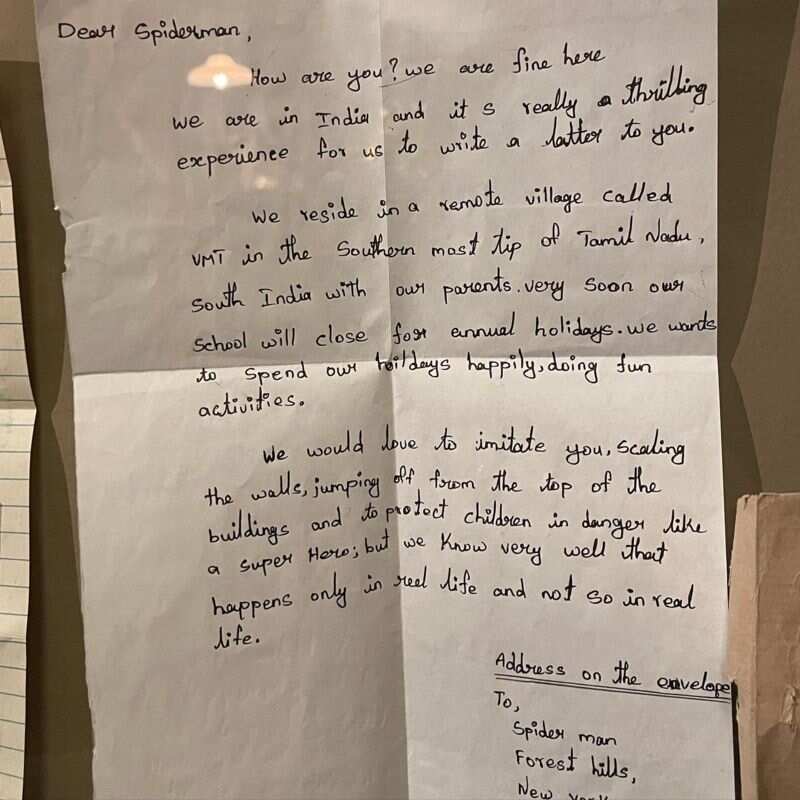 Dear Spiderman,
How are you? we are fine here
we are in India and it s really a thrilling
experience for us to write a latter to you.
We reside in a remote village called
VMT in the Southern most tip of Tamil Nadu,
South India with our parents. very soon our
School will close for annual holidays. we wants
to spend our hoildays happily, doing fun
activities.
We would love to imitate you, scaling
the walls, jumping off from the top of the
buildings and to protect children in danger like
a super Hero; but we know very well that
happens only in reel life and not so in real
life.
Address on the envelope
To,
Spider man
Forest hills,
New York